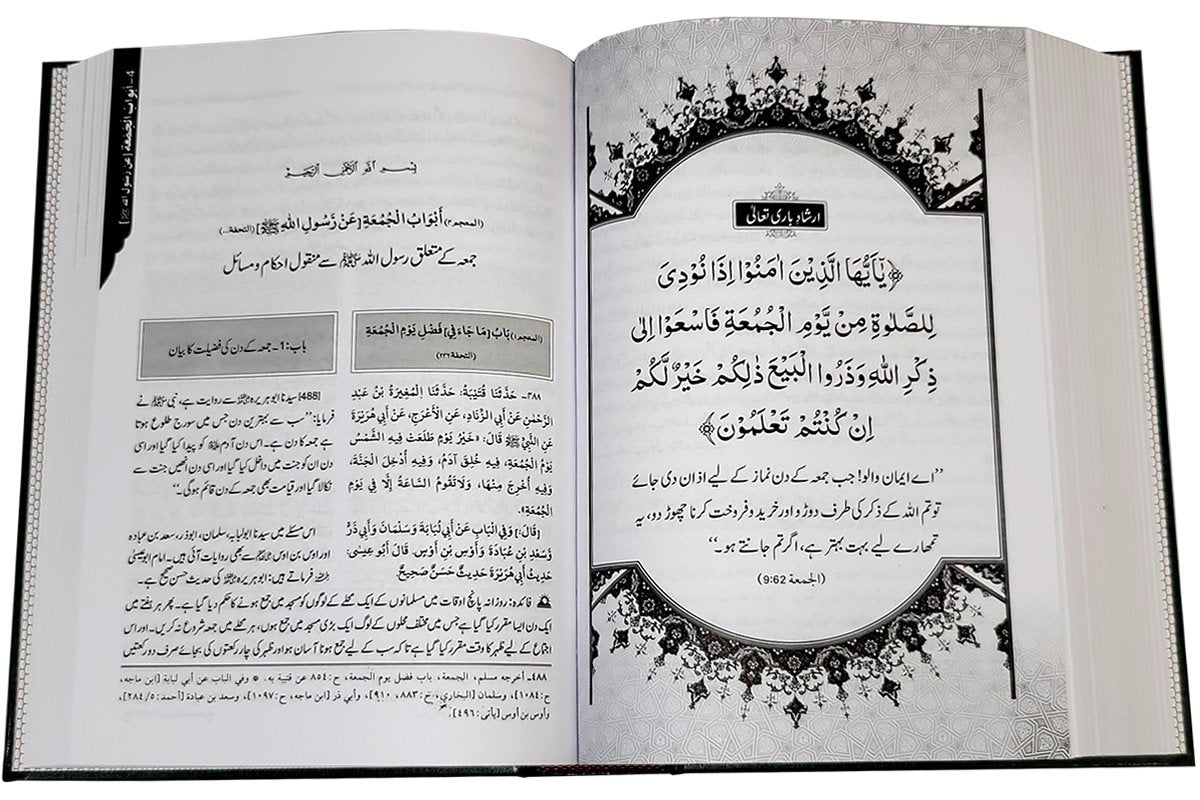 ارشاد باری تعالیٰ
﴿يٰٓاَيُّهَا الَّذِيْنَ اٰمَنُوْٓا اِذَا نُوْدِيَ
لِلصَّلٰوةِ مِنْ يَّوْمِ الْجُمُعَةِ فَاسْعَوْا اِلٰى
ذِكْرِ اللّٰهِ وَذَرُوا الْبَيْعَ ذٰلِكُمْ خَيْرٌ لَّكُمْ
اِنْ كُنْتُمْ تَعْلَمُوْنَ﴾
’’اے ایمان والو! جب جمعہ کے دن نماز کے لیے اذان دی جائے
تو تم اللہ کے ذکر کی طرف دوڑو اور خرید و فروخت کرنا چھوڑ دو، یہ
تمھارے لیے بہت بہتر ہے، اگر تم جانتے ہو۔‘‘
(الجمعة 9:62)
4- أبواب الجُمعة [عن رسول الله ﷺ]
بسم الله الرحمن الرحيم
(المعجم ٤) أَبْوَابُ الْجُمُعَةِ [عَنْ رَّسُولِ اللهِ ﷺ] (التحفة...)
جمعہ کے متعلق رسول اللہ ﷺ سے منقول احکام و مسائل
(المعجم ١) بَابُ [مَا جَاءَ فِي] فَضْلِ يَوْمِ الْجُمُعَةِ
(التحفة ٢٣٦)
٤٨٨- حَدَّثَنَا قُتَيْبَةُ: حَدَّثَنَا الْمُغِيرَةُ بْنُ عَبْدِ
الرَّحْمٰنِ عَنْ أَبِي الزِّنَادِ، عَنِ الْأَعْرَجِ، عَنْ أَبِي هُرَيْرَةَ
عَنِ النَّبِيِّ ﷺ قَالَ: «خَيْرُ يَوْمٍ طَلَعَتْ فِيهِ الشَّمْسُ
يَوْمُ الْجُمُعَةِ، فِيهِ خُلِقَ آدَمُ، وَفِيهِ أُدْخِلَ الْجَنَّةَ،
وَفِيهِ أُخْرِجَ مِنْهَا، وَلَا تَقُومُ السَّاعَةُ إِلَّا فِي يَوْمِ
الْجُمُعَةِ».
[قَالَ:] وَفِي الْبَابِ عَنْ أَبِي لُبَابَةَ وَسَلْمَانَ وَأَبِي ذَرٍّ
وَسَعْدِ بْنِ عُبَادَةَ وَأَوْسِ بْنِ أَوْسٍ. قَالَ أَبُو عِيسَى:
حَدِيثُ أَبِي هُرَيْرَةَ حَدِيثٌ حَسَنٌ صَحِيحٌ.
باب: 1- جمعہ کے دن کی فضیلت کا بیان
[488] سیدنا ابو ہریرہ ؓ سے روایت ہے، نبی ﷺ نے
فرمایا: ’’سب سے بہترین دن جس میں سورج طلوع ہوتا
ہے جمعہ کا دن ہے۔ اس دن آدم ؑ کو پیدا کیا گیا اور اسی
دن ان کو جنت میں داخل کیا گیا اور اسی دن انھیں جنت سے
نکالا گیا اور قیامت بھی جمعہ کے دن قائم ہوگی۔‘‘
اس مسئلے میں سیدنا ابولبابہ، سلمان، ابوذر، سعد بن عبادہ
اور اوس بن اوس ؓ سے بھی روایات آئی ہیں۔ امام ابوعیسیٰ
ؒ فرماتے ہیں: ابوہریرہ ؓ کی حدیث حسن صحیح ہے۔
فائدہ: روزانہ پانچ اوقات میں مسلمانوں کے ایک محلے کے لوگوں کو مسجد میں جمع ہونے کا حکم دیا گیا ہے۔ پھر ہر ہفتے میں
ایک دن ایسا مقرر کیا گیا ہے جس میں مختلف محلوں کے لوگ ایک بڑی مسجد میں جمع ہوں، ہر محلے میں جمعہ شروع نہ کریں۔ اور اس
اجتماع کے لیے ظہر کا وقت مقرر کیا گیا ہے تا کہ سب کے لیے جمع ہونا آسان ہو اور ظہر کی چار رکعتوں کی بجائے صرف دو رکعتیں
٤٨٨- أخرجه مسلم، الجمعة، باب فضل يوم الجمعة، ح: ٨٥٤ عن قتيبة به. * وفي الباب عن أبي لبابة [ابن ماجه،
ح: ١٠٨٤]، وسلمان [البخاري، ح: ٨٨٣، ٩١٠]، وأبي ذر [ابن ماجه، ح: ١٠٩٧]، وسعد بن عبادة [أحمد: ٥/ ٢٨٤]
وأوس بن أوس [يأتي: ٤٩٦].